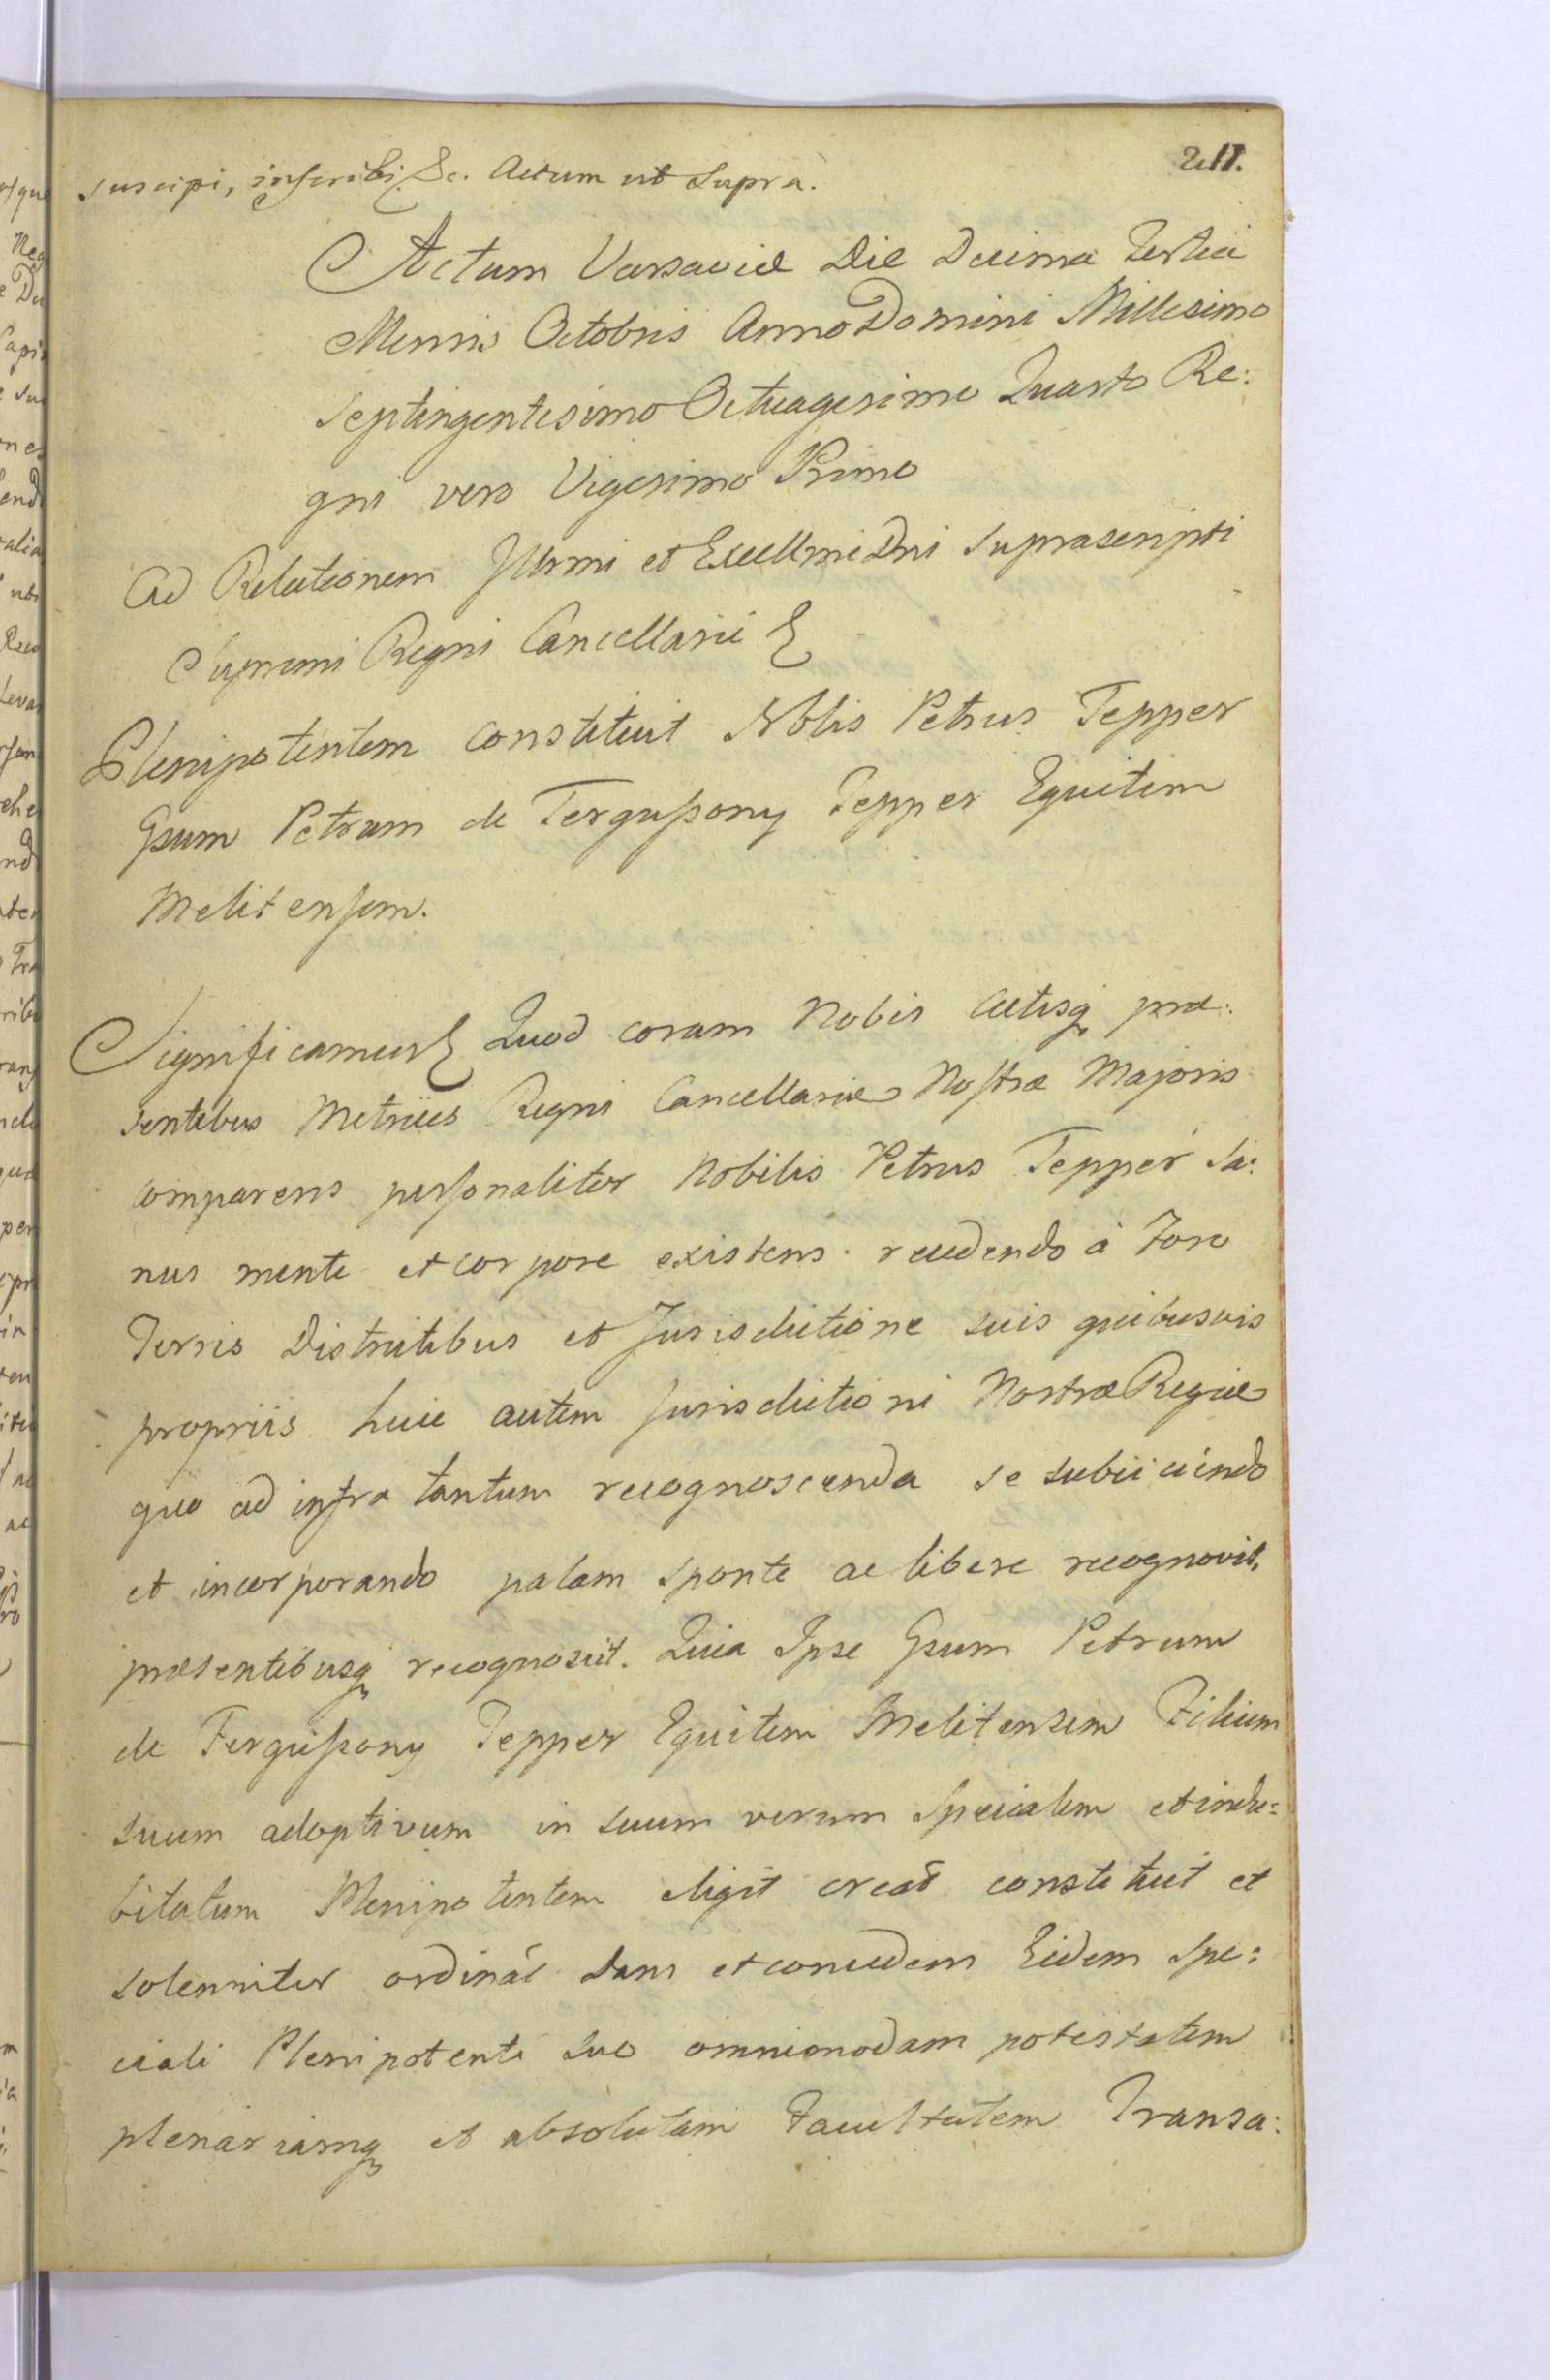 211.
suscipi, inscribi &c. Actum ut supra.
Actum Varsaviæ Die Decima Tertia
Mensis Octobris Anno Domini Millesimo
Septingentesimo Octuagesimo Quarto Re:
gni vero Vigesimo Primo
Ad Relationem Illrmi et Excellmi Dni Suprascripti
Supremi Regni Cancellarii &
Plenipotentem constituit Nblis Petrus Tepper
Gsum Petrum de Fergußony Tepper Equitem
Melitensem.
Significamus & Quod coram Nobis Actisq præ:
sentibus Metrices Regni Cancellariæ Nostræ Majoris
comparens personaliter Nobilis Petrus Tepper sa:
nus mente et corpore existens recedendo à Foro
Terris Districtibus et Jurisdictione suis quibusvis
propriis huic autem Jurisdictioni Nostræ Regiæ
quo ad infra tantum recognoscenda se subiiciendo
et incorporando palam sponte ac libere recognovit,
præsentibusq recognoscit. Quia Ipse Gsum Petrum
de Fergußony Tepper Equitem Melitensem Filium
suum adoptivum in suum verum specialem et indu:
bitatum Plenipotentem eligit creat constituit et
solenniter ordinat dans et concedens Eidem spe:
ciali Plenipotenti suo omnimodam potestatem
plenariamq et absolutam Facultatem Transa: